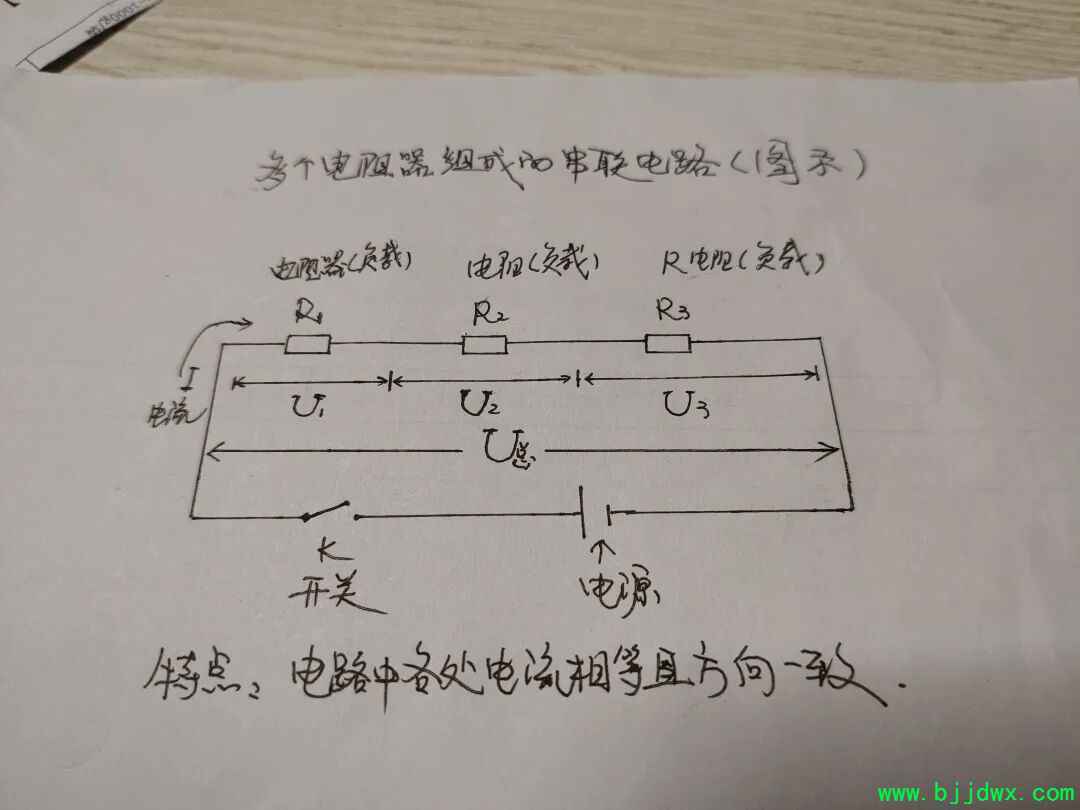 多个电阻器组成的串联电路(图示)
电阻器(负载) 电阻(负载) R电阻(负载)
R1 R2 R3
I
电流
U1 U2 U3
U总
K
开关
电源
特点: 电路中各处电流相等且方向一致.
www.bjjdwx.com